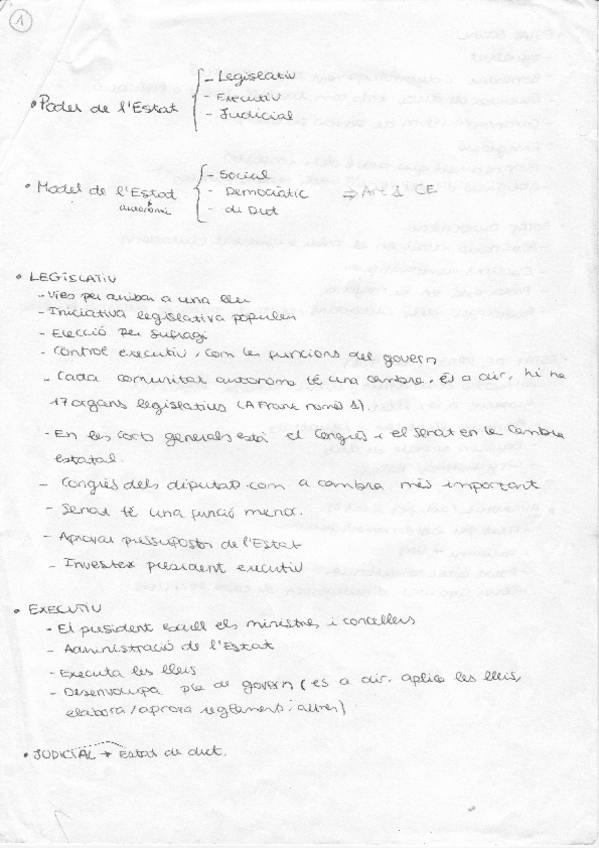 1
• Poders de l'Estat
- Legislatiu
- Executiu
- Judicial
• Model de l'Estat
autonòmic
- Social
- Democràtic ⇒ Art 1 CE
- de Dret
• LEGISLATIU
- Vies per arribar a una llei
- Iniciativa legislativa popular
- Elecció per sufragi
- Control executiu, com les funcions del govern
- Cada comunitat autonoma té una cambra, és a dir, hi ha
17 organs legislatius (A França només 1).
- En les corts generals està el Congrés i el senat en la Cambra
estatal.
- Congrés dels diputats com a cambra més important
- Senat té una funció menor.
- Aprovar pressupostos de l'Estat
- Investeix president executiu
• EXECUTIU
- El president escull els ministres i consellers
- Administració de l'Estat
- Executa les lleis
- Desenvolupa pla de govern (és a dir, aplica les lleis,
elabora/aprova reglaments i altres).
• JUDICIAL → Estat de dret.